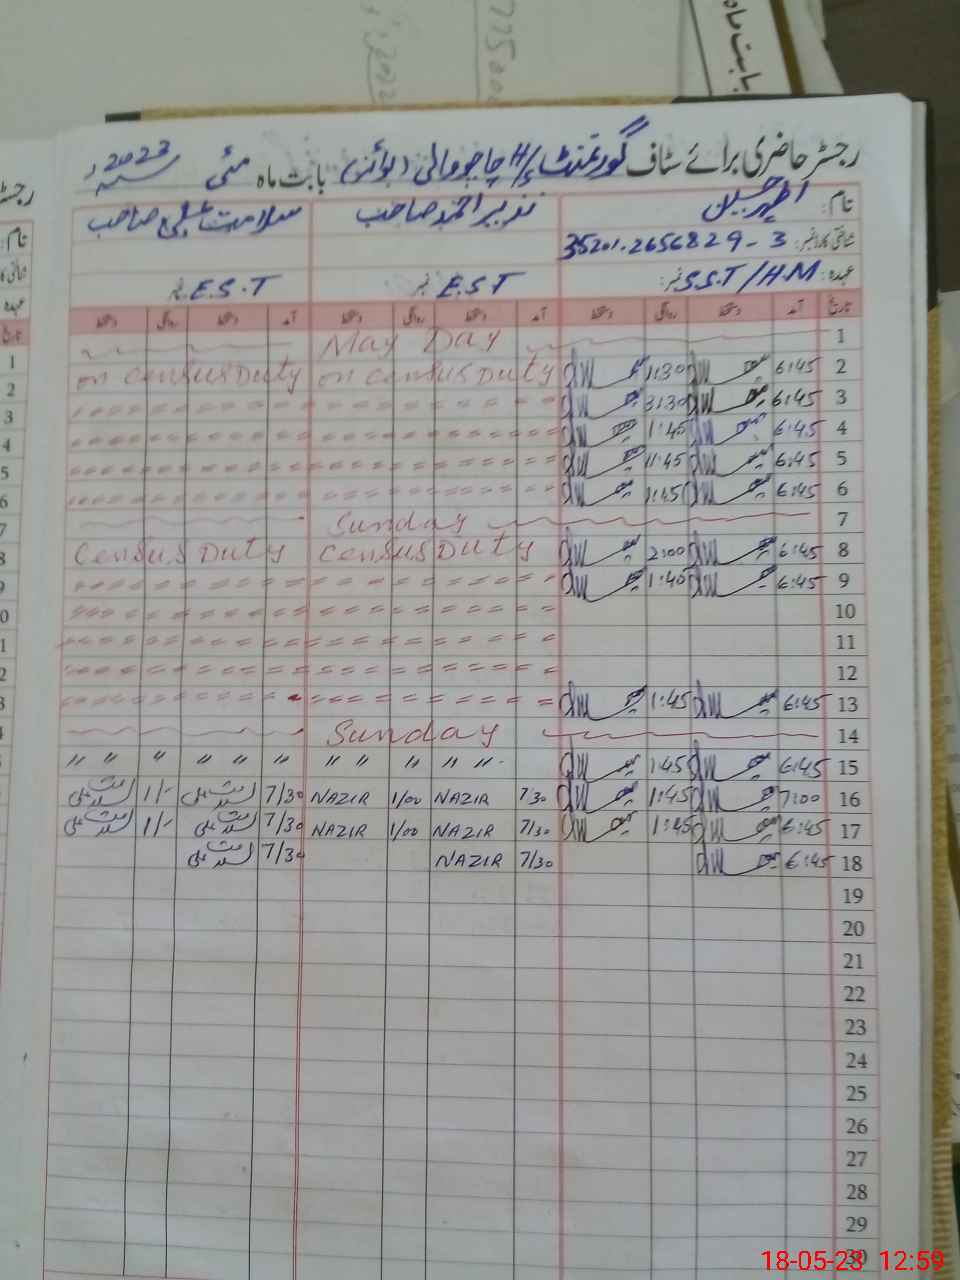 بابت ماہ
رجسٹر حاضری برائے سٹاف گورنمنٹ H/S چاچووالی (بوائز) بابت ماہ مئی سنہ 2023ء
نام: اطہر حسین نذیر احمد صاحب سلامت علی صاحب
شناختی کارڈ نمبر: 35201-2656829-3
عہدہ: S.S.T/H.M نمبر: E.S.T نمبر E.S.T نمبر
تاریخ آمد دستخط روانگی دستخط آمد دستخط روانگی دستخط آمد دستخط روانگی دستخط
1 May Day
2 6:45 1:30 on census Duty on census Duty
3 6:45 3:30 〃 〃
4 6:45 1:45 〃 〃
5 6:45 11:45 〃 〃
6 6:45 1:45 〃 〃
7 Sunday
8 6:45 2:00 Census Duty Census Duty
9 6:45 1:40 〃 〃
10 〃 〃
11 〃 〃
12 〃 〃
13 6:45 1:45 〃 〃
14 Sunday
15 6:45 1:45 〃 〃
16 7:00 1:45 7/30 NAZIR 1/00 NAZIR 7/30 سلامت علی 1/- سلامت علی
17 6:45 1:45 7/30 NAZIR 1/00 NAZIR 7/30 سلامت علی 1/- سلامت علی
18 6:45 7/30 NAZIR 7/30 سلامت علی
19
20
21
22
23
24
25
26
27
28
29
30
18-05-23 12:59